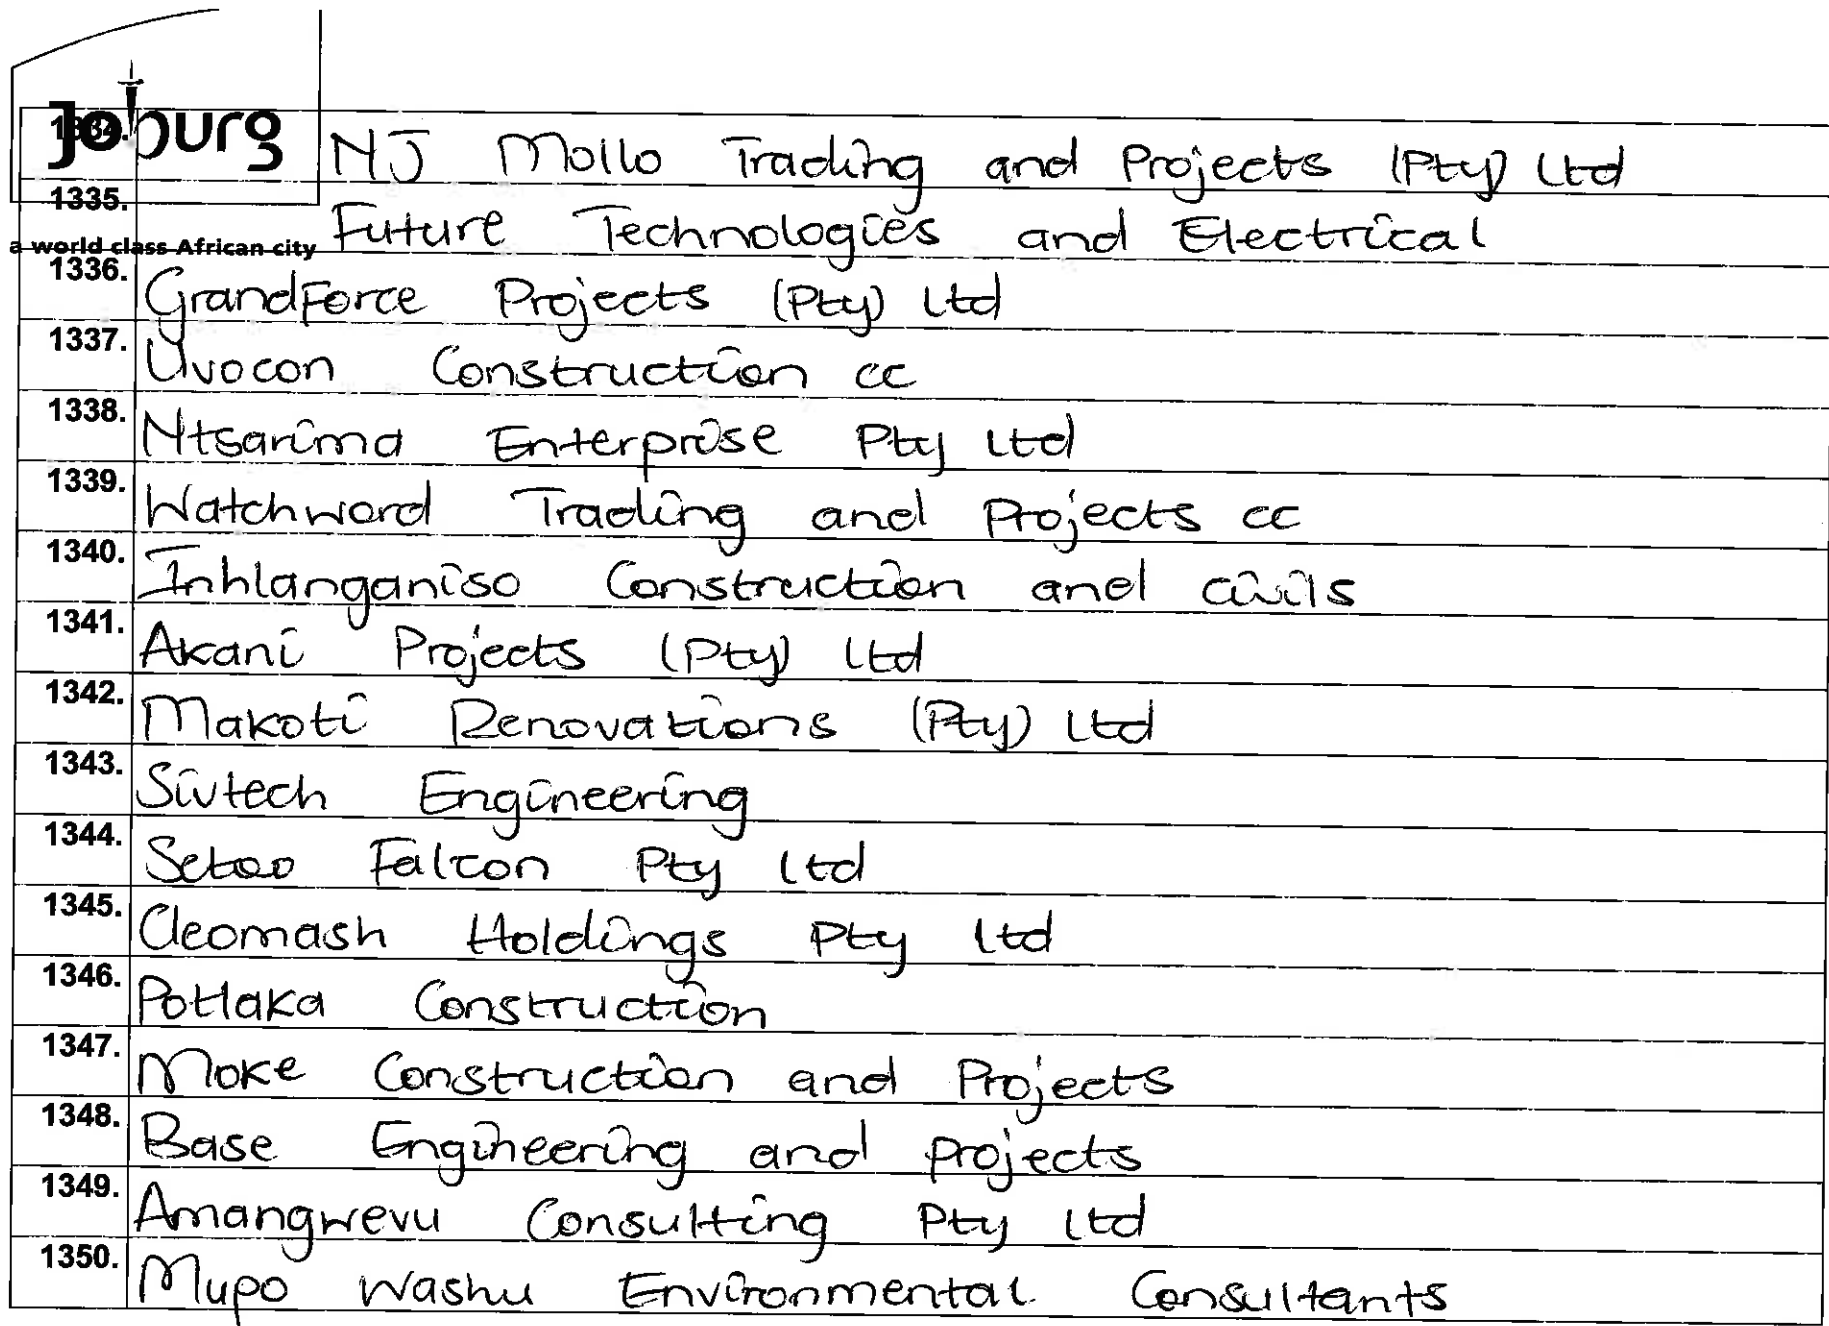 Joburg
1334. NJ Mollo Trading and Projects (Pty) Ltd
1335. Future Technologies and Electrical
a world class African city
1336. GrandForce Projects (Pty) Ltd
1337. Uvocon Construction cc
1338. Ntsarima Enterprise Pty Ltd
1339. Watchword Trading and Projects cc
1340. Inhlanganiso Construction and Civils
1341. Akani Projects (Pty) Ltd
1342. Makoti Renovations (Pty) Ltd
1343. Sivtech Engineering
1344. Falcon Pty Ltd
1345. Cleomash Holdings Pty Ltd
1346. Potlaka Construction
1347. Moke Construction and Projects
1348. Base Engineering and Projects
1349. Amangwevu Consulting Pty Ltd
1350. Mupo Washu Environmental Consultants